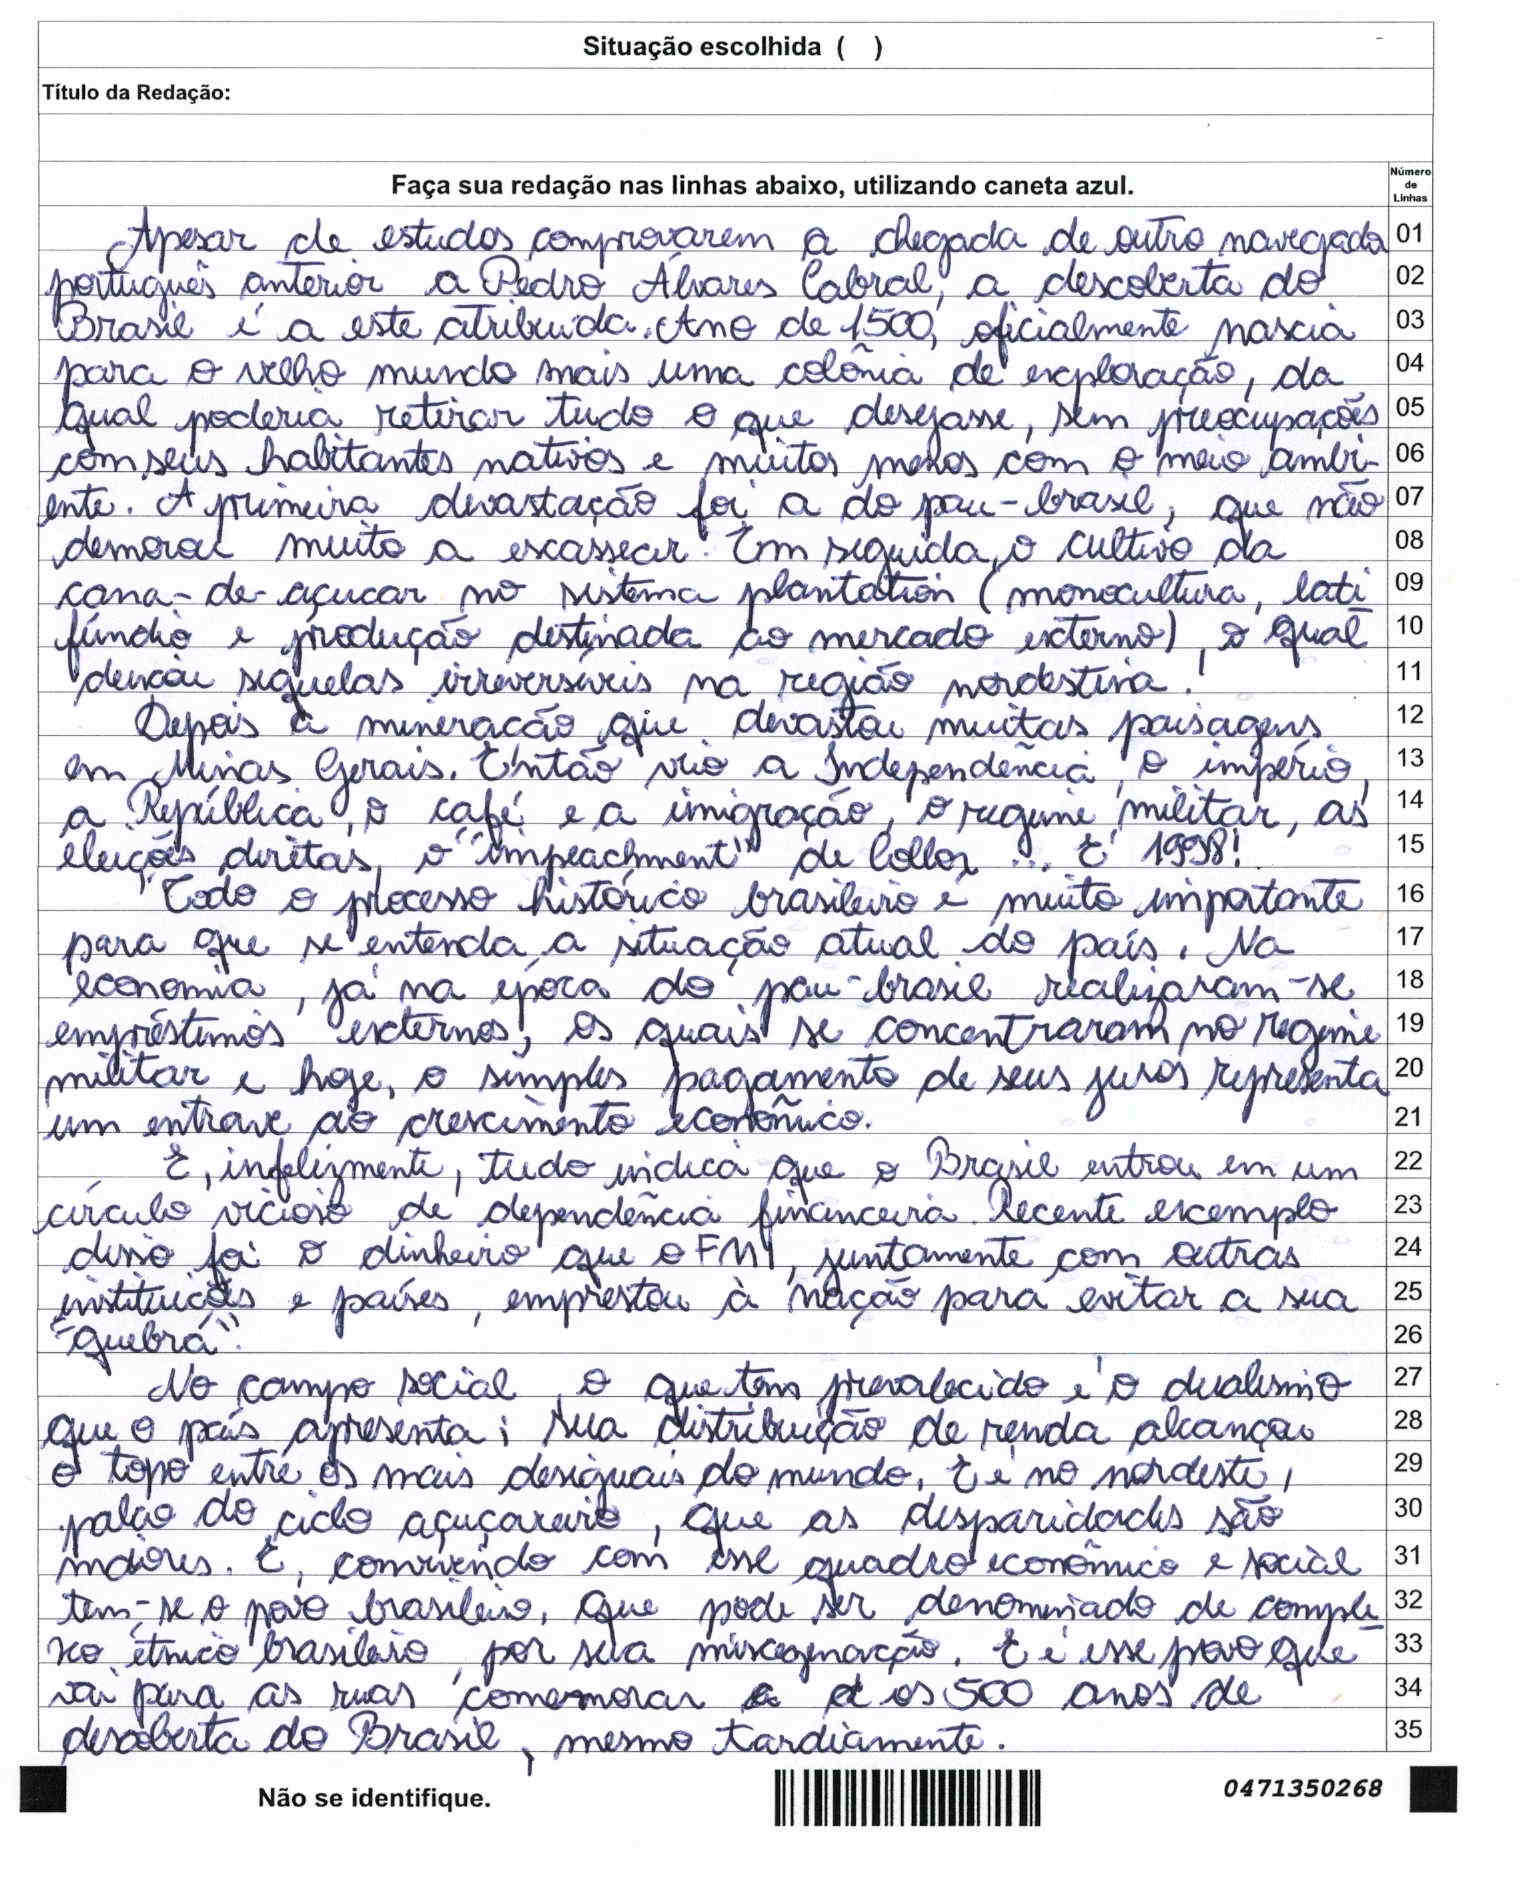 Situação escolhida ( )
Título da Redação:
Faça sua redação nas linhas abaixo, utilizando caneta azul.
Número de Linhas
Apesar de estudos comprovarem a chegada de outro navegada 01
português anterior a Pedro Álvares Cabral, a descoberta do 02
Brasil é a este atribuída. Ano de 1500, oficialmente nascia 03
para o velho mundo mais uma colônia de exploração, da 04
qual poderia retirar tudo o que desejasse, sem preocupações 05
com seus habitantes nativos e muitos menos com o meio ambi- 06
ente. A primeira devastação foi a do pau-brasil, que não 07
demorou muito a escassear. Em seguida, o cultivo da 08
cana-de-açucar no sistema plantation (monocultura, lati 09
fúndio e produção destinada ao mercado externo), o qual 10
deixou sequelas irreversíveis na região nordestina. 11
Depois a mineração que devastou muitas paisagens 12
em Minas Gerais. Então veio a Independência, o império, 13
a República, o café e a imigração, o regime militar, as 14
eleições diretas, o "impeachment" de Collor ... E 1998! 15
Todo o processo histórico brasileiro é muito importante 16
para que se entenda a situação atual do país. Na 17
economia, já na época do pau-brasil realizaram-se 18
empréstimos externos, os quais se concentraram no regime 19
militar e hoje, o simples pagamento de seus juros representa 20
um entrave ao crescimento econômico. 21
E, infelizmente, tudo indica que o Brasil entrou em um 22
círculo vicioso de dependência financeira. Recente exemplo 23
disso foi o dinheiro que o FMI, juntamente com outras 24
instituições e países, emprestou à nação para evitar a sua 25
"quebra". 26
No campo social, o que tem prevalecido é o dualismo 27
que o país apresenta; sua distribuição de renda alcançou 28
o topo entre os mais desiguais do mundo. E é no nordeste, 29
palco do ciclo açucareiro, que as disparidades são 30
maiores. E, convivendo com esse quadro econômico e social 31
tem-se o povo brasileiro, que pode ser denominado de comple 32
xo étnico brasileiro, por sua miscegenação. E é esse povo que 33
vai para as ruas comemorar os 500 anos de 34
descoberta do Brasil, mesmo tardiamente. 35
Não se identifique.
0471350268